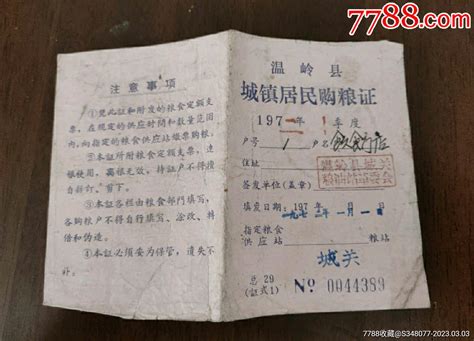 7788.com
注意事项
①凭此证和所发的粮食定额支
票，在规定的供应时间和数量范围
内，向指定的粮食供应站缴票购粮。
②本证所附粮食定额支票，连
续使用，离根无效，持证户不得擅
自拆订、剪下。
③本证各栏由粮食部门填写，
各购粮户不得自行填写、涂改、转
借和伪造。
④本证必须妥为保管，遗失不
补。
温岭县
城镇居民购粮证
197 年 1 季度
户号 1 户名 饮食店
住址
温岭县城关
签发单位(盖章)
填发日期：197 年 月 日
一九七三年一月一日
指定粮食
供应站 粮站
城关
总29
(证式1) № 0044389
7788收藏@S348077-2023.03.03